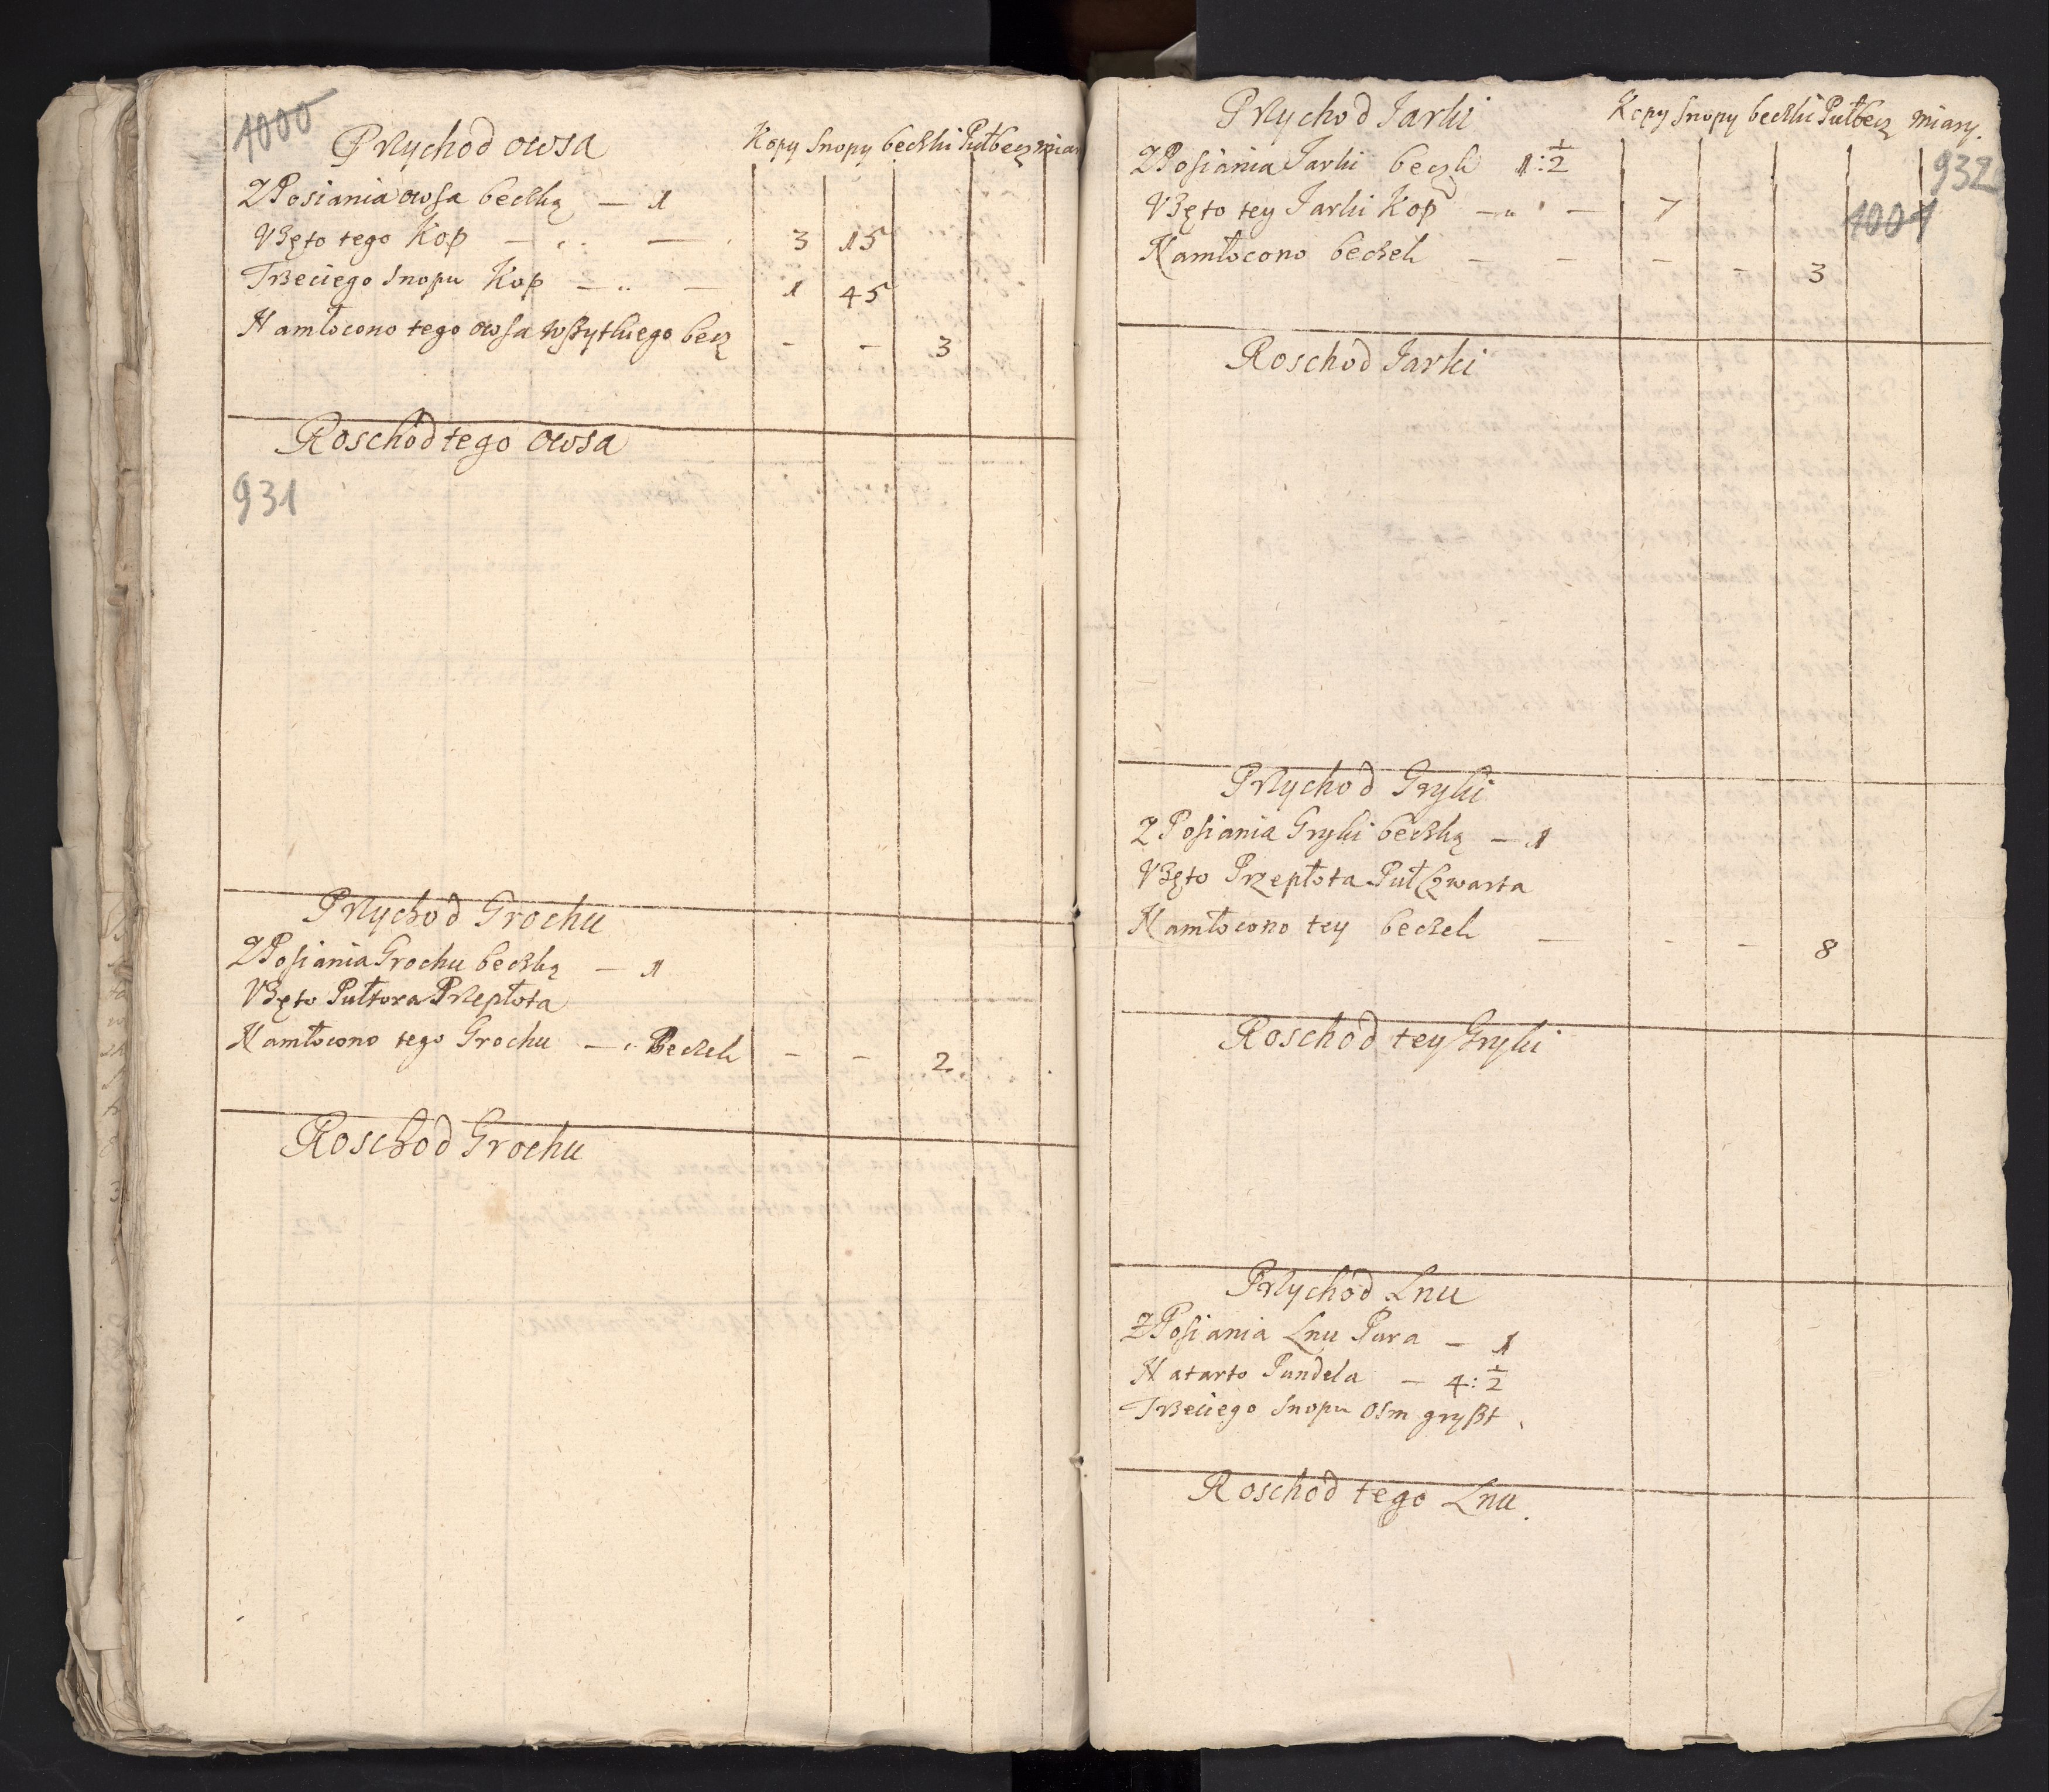 1000
Przychod owsa Kopy Snopy beczki Pułbecz miar
Z Posiania owsa beczką — 1
Vżęto tego Kop — — 3 15
Trzeciego Snopu Kop — — 1 45
Namłocono tego owsa wszytkiego becz - - 3
Roschod tego owsa
931
Przychod Grochu
Z Posiania Grochu beczką — 1
Vżęto Pułtora Przepłota
Namłocono tego Grochu — Beczek - - 2
Roschod Grochu
Przychod Jarki Kopy Snopy beczki Pułbecz miary.
Z Posiania Jarki beczk 1:½
932
Vżęto tey Jarki Kop — — 7
1001
Namłocono beczek - - - - 3
Roschod Jarki
Przychod Gryki
Z Posiania Gryki beczką — 1
Vżęto Przepłota Puł Czwarta
Namłocono tey beczek — - - 8
Roschod tey Gryki
Przychod Lnu
Z Posiania Lnu Pura — 1
Natarto Pundela — 4:½
Trzeciego Snopu osm gryszt
Roschod tego Lnu.